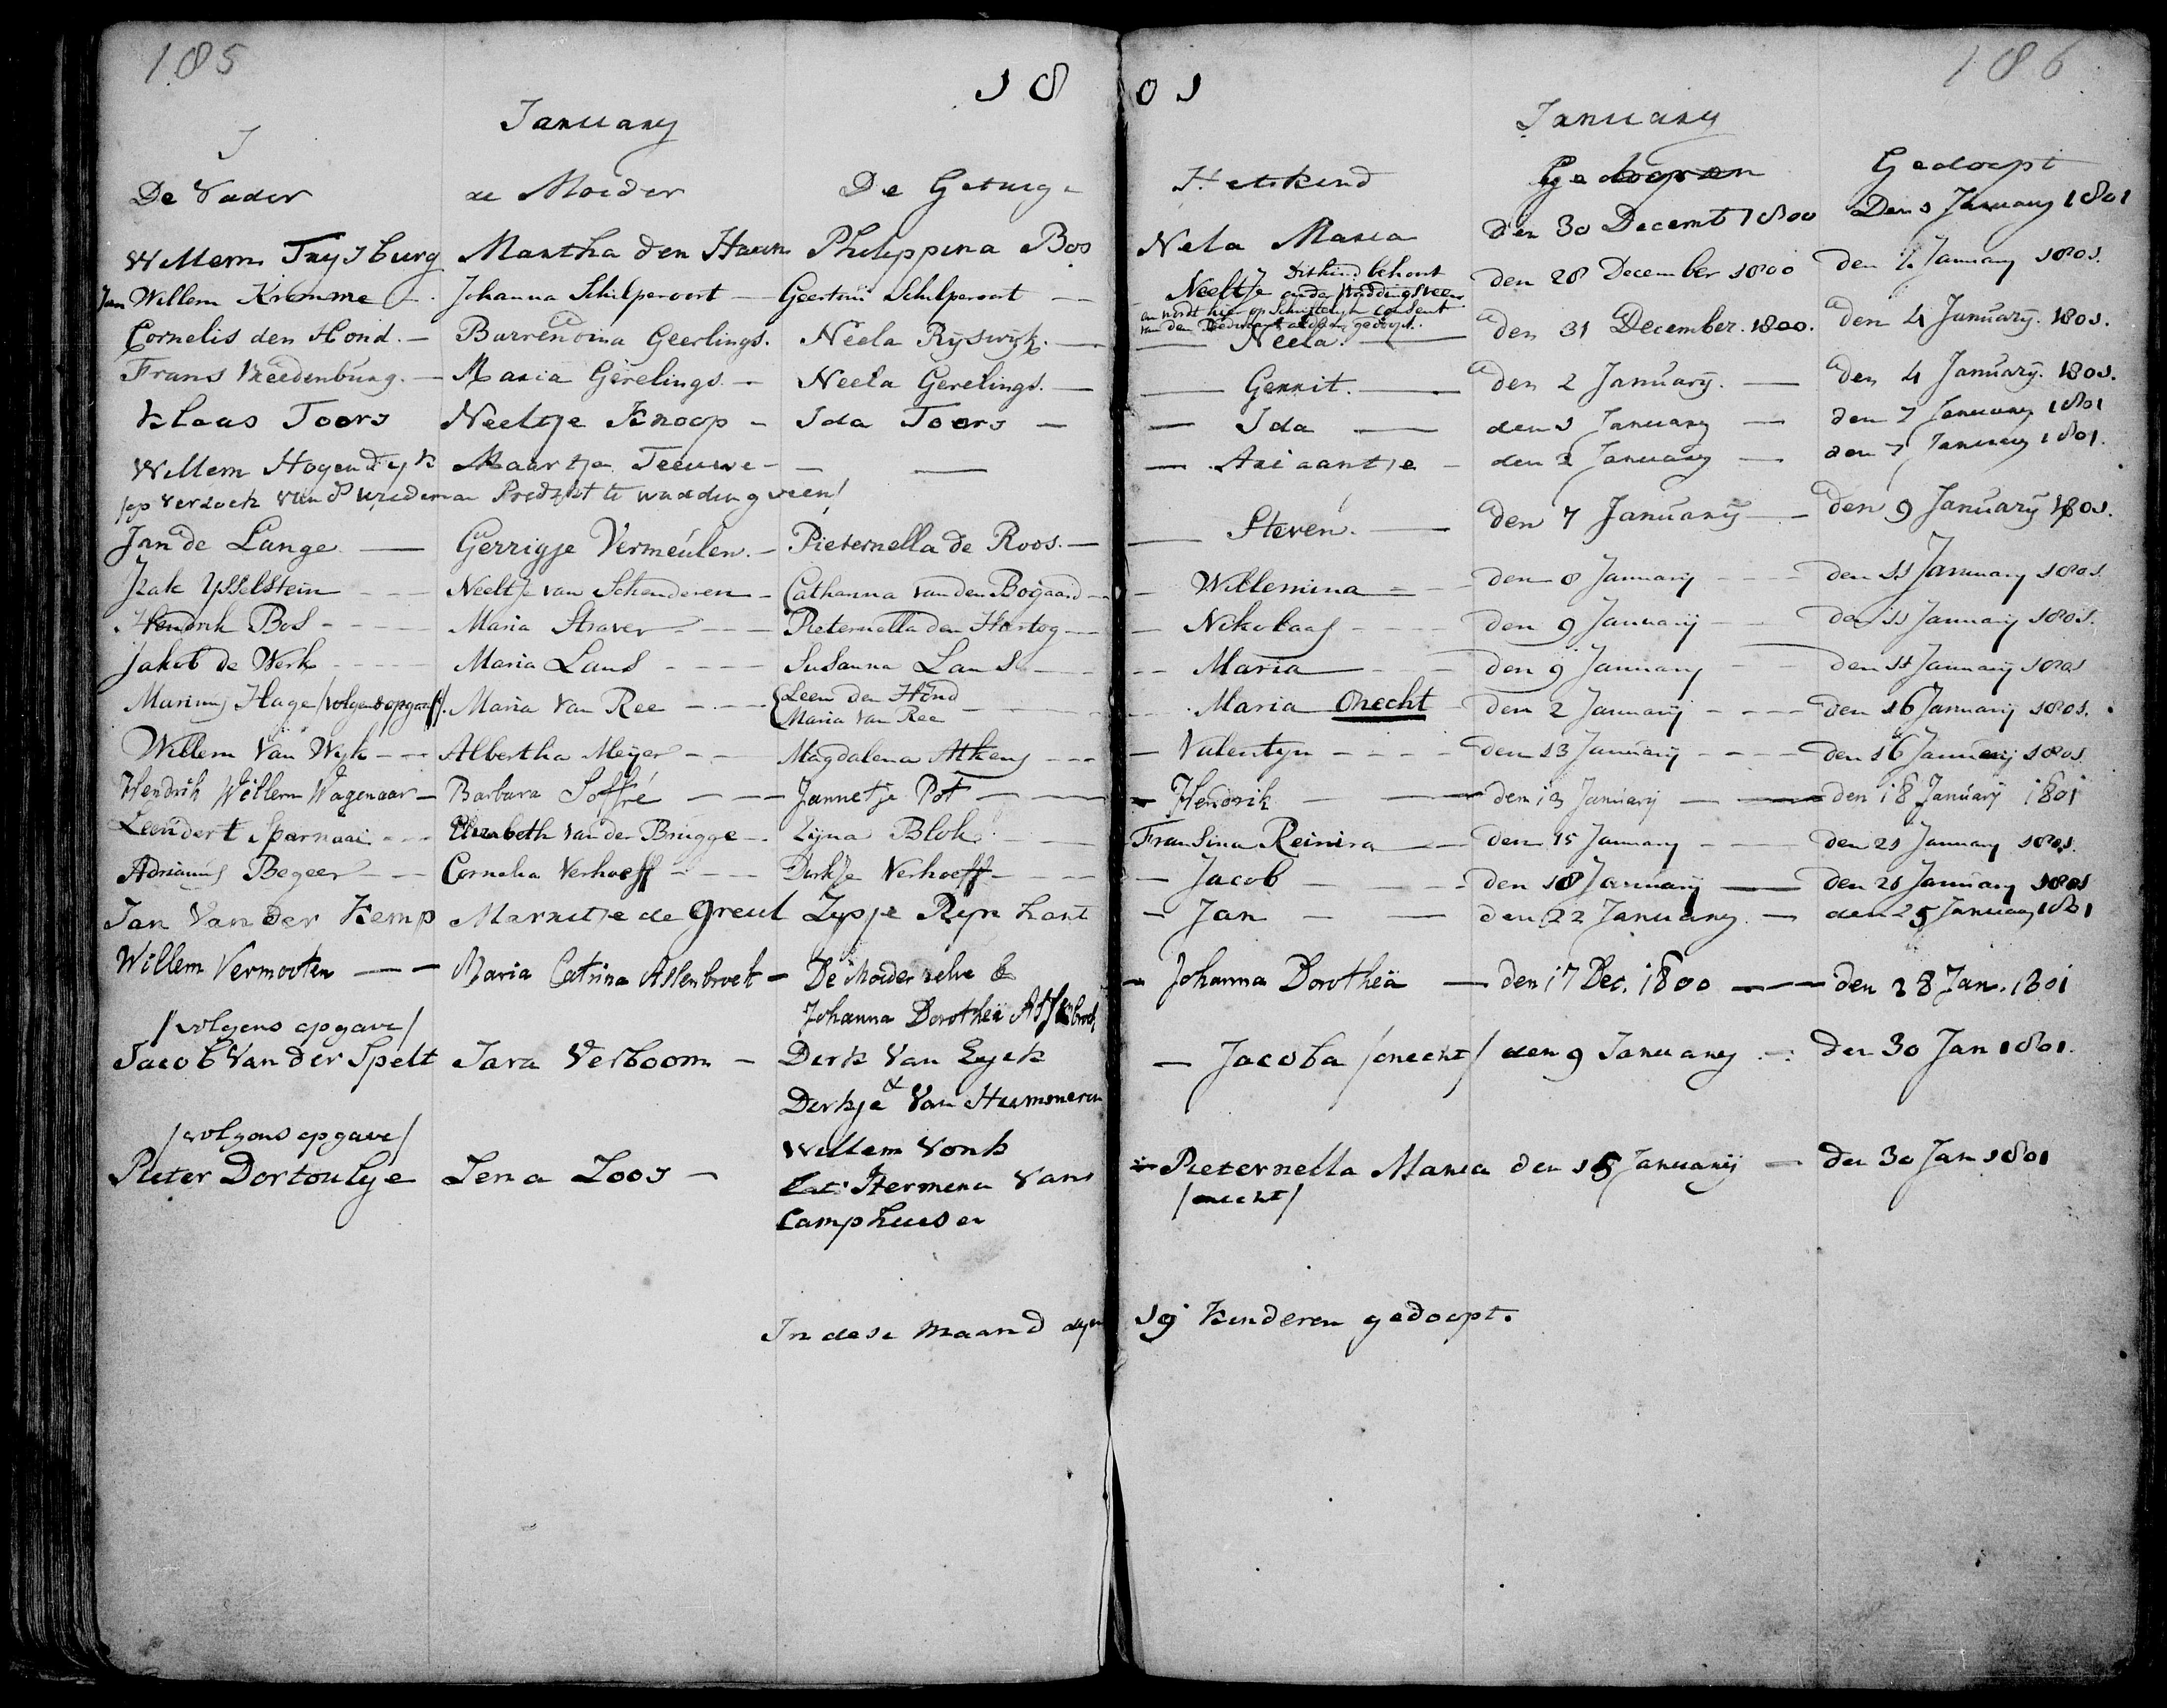 185
186
18 01
January
January
De Vader de Moeder De Getuige Het kind Gebooren Gedoopt
Willem Truysburg Martha den Haen Philippina Bos Nela Maria den 30 Decemb 1800 Den 1 January 1801
Jan Willem Kromme Johanna Schilperoort Geertrui Schilperoort Neeltje Dit kind behoort den 28 December 1800 den 1 January 1801.
onder Waddingsveen
en wordt hier op Schriftelyk consent
van den Predikant aldaar gedoopt.
Cornelis den Hond. Barrendina Geerlings. Neela Ryswyk. Neela. den 31 December. 1800. den 4 January. 1801.
Frans Vreedenburg. Maria Gerelings. Neela Gerelings. Gerrit. den 2 January. den 4 January. 1801.
Klaas Toors Neeltje Knoop Ida Toors Ida den 3 January den 7 January 1801
Willem Hogendyk Maartje Teeuwe Ariaantje den 2 January den 7 January 1801.
/op versoek van d wed Predkt te wadding veen/
Jan de Lange Gerrigje Vermeulen. Pieternella de Roos. Steven. den 7 January den 9 January 1801.
Izak Ysselstein Neeltje van Schenderen Catharina van den Bogaard Willemina den 8 January den 11 January 1801
Hendrik Bos Maria Straver Pieternella den Hartog Nikolaas den 9 January den 11 January 1801.
Jakob de Werk Maria Lans Susanna Lans Maria den 9 January den 11 January 1801
Marinus Hage /volgens opgaaf/. Maria Van Ree Leen den Hond Maria Onecht den 2 January den 16 January 1801.
Maria van Ree
Willem Van Wyk Albertha Meyer Magdalena Atkens Valentyn den 13 January den 16 January 1801
Hendrik Willem Wagenaar Barbara Soffré Jannetje Pot Hendrik den 13 January den 18 January 1801
Leendert Sparnaai Elizabeth van der Brugge Lyna Blok Fransina Reinira den 15 January den 21 January 1801.
Adrianus Begeer Cornelia Verhoeff Dirkje Verhoeff Jacob den 18 January den 21 January 1801
Jan Van der Kemp Marretje de Greul Zypje Ryn hart Jan den 22 January den 25 January 1801
Willem Vermooten Maria Catrina Assenbroek De Moeder selve & Johanna Dorotheä den 17 Dec. 1800 den 28 Jan. 1801
Johanna Dorotheä Assenbroek
/volgens opgave/
Jacob Van der Spelt Sara Verboom Dirk Van Eyck Jacoba /onecht/ den 9 January den 30 Jan 1801.
& Dirkje Van Hummeren
/volgens opgave/
Pieter Dortoulje Lena Loos Willem Vonk Pieternella Maria den 15 January den 30 Jan 1801
Hermina Van /onecht/
Camphuisen
In dese maand zyn 19 kinderen gedoopt.